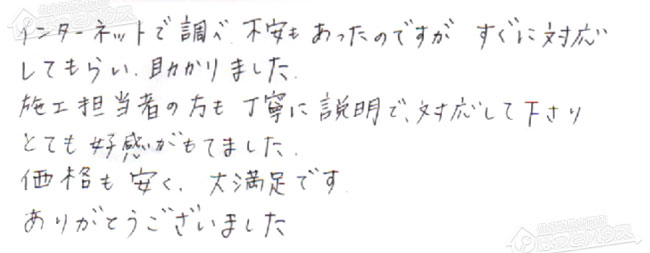 インターネットで調べ、不安もあったのですが すぐに対応
してもらい、助かりました.
施工担当者の方も丁寧に説明で、対応して下さり
とても好感がもてました.
価格も安く、大満足です.
ありがとうございました